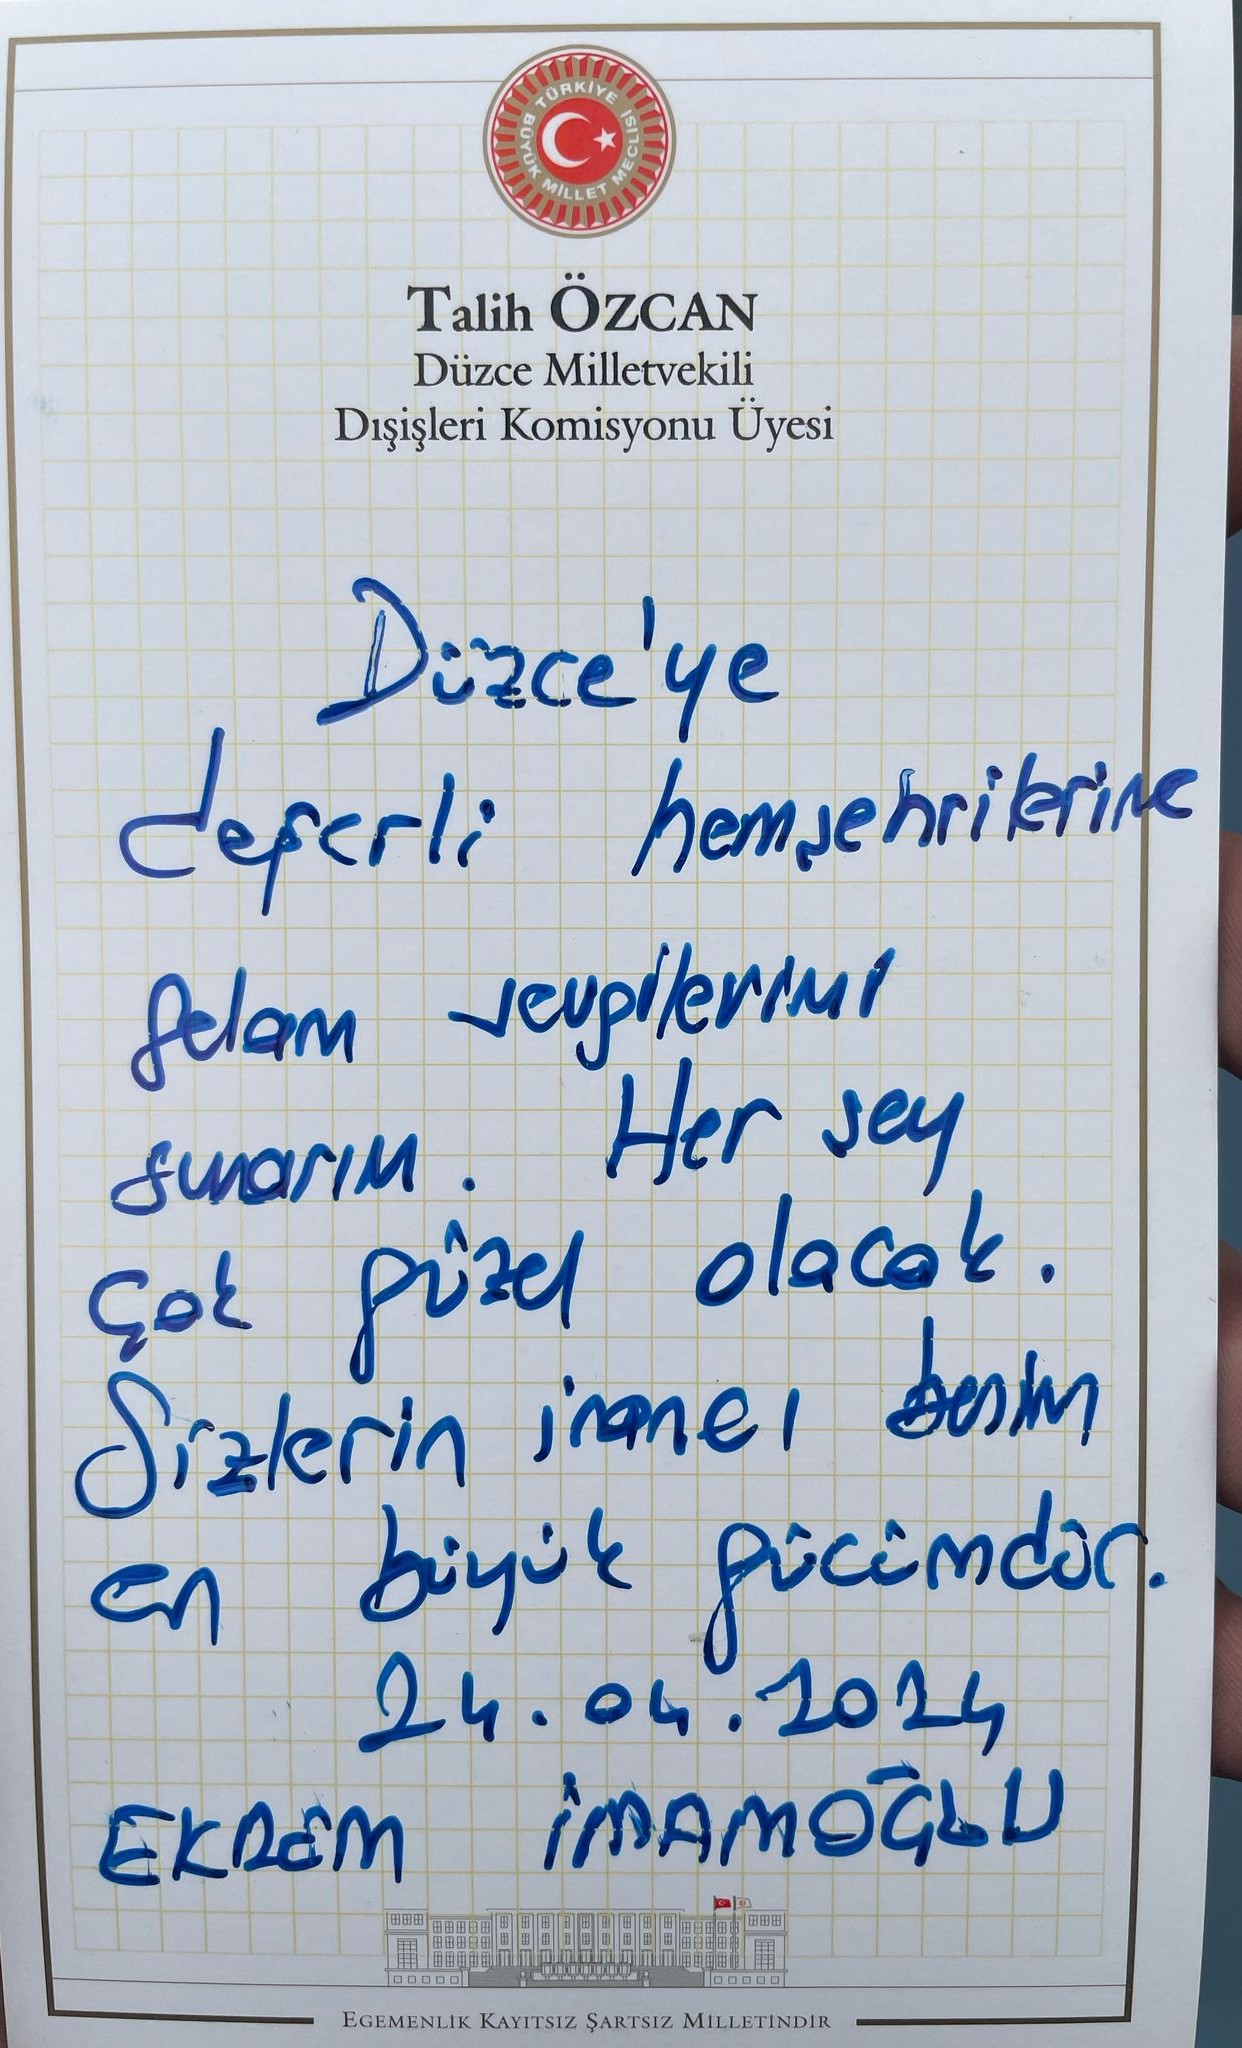 TÜRKİYE BÜYÜK MİLLET MECLİSİ
Talih ÖZCAN
Düzce Milletvekili
Dışişleri Komisyonu Üyesi
Düzce'ye
değerli hemşehrilerine
selam sevgilerimi
sunarım. Her şey
çok güzel olacak.
Sizlerin inancı benim
en büyük gücümdür.
24.04.2024
EKREM İMAMOĞLU
EGEMENLİK KAYITSIZ ŞARTSIZ MİLLETİNDİR